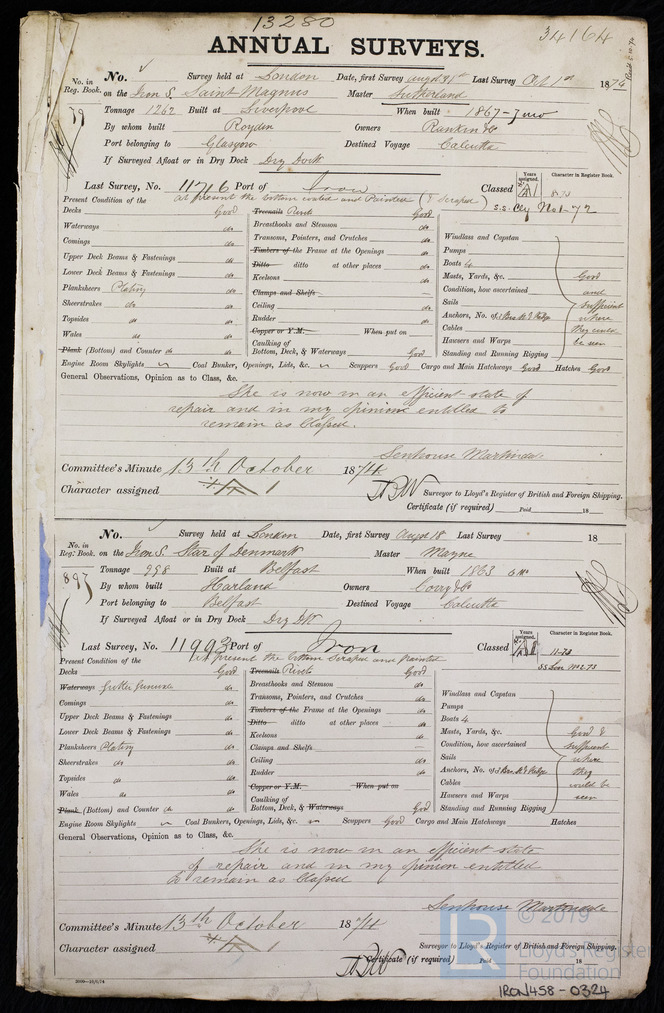 13280
34164
ANNUAL SURVEYS.
No. in Reg. Book. No. Survey held at London Date, first Survey augd 31st Last Survey Oct 1st 1874
79 on the Iron S. Saint Magnus Master Sutherland
Tonnage 1262 Built at Liverpool When built 1867-7mo
By whom built Royden Owners Rankin &Co
Port belonging to Glasgow Destined Voyage Calcutta
If Surveyed Afloat or in Dry Dock Dry Dock
Last Survey, No. 11716 Port of Iron Classed Years assigned. Character in Register Book.
A1 8.73
S.S. Cly No1-72
Present Condition of the at present the bottom coated and Painted (& scraped)
Decks Good Treenails Rivets Good
Waterways do Breasthooks and Stemson do Windlass and Capstan
Comings do Transoms, Pointers, and Crutches do Pumps
Upper Deck Beams & Fastenings do Timbers of the Frame at the Openings do Boats 4
Lower Deck Beams & Fastenings do Ditto ditto at other places do Masts, Yards, &c. Good
Planksheers Plating do Keelsons do Condition, how ascertained and
Sheerstrakes do do Clamps and Shelfs — Sails sufficient
Topsides do do Ceiling do Anchors, No. of where
Wales do do Rudder do Cables they could
Copper or Y.M. When put on Hawsers and Warps be seen
Plank (Bottom) and Counter do do Caulking of Bottom, Deck, & Waterways Good Standing and Running Rigging
Engine Room Skylights Coal Bunker, Openings, Lids, &c. Scuppers Good Cargo and Main Hatchways Good Hatches Good
General Observations, Opinion as to Class, &c.
She is now in an efficient state of
repair and in my opinion entitled to
remain as Classed.
Senhouse Martindale
Committee's Minute 13th October 1874
Character assigned A 1 Surveyor to Lloyd's Register of British and Foreign Shipping.
Certificate (if required) Paid 18
No. in Reg. Book. No. Survey held at London Date, first Survey Augd 18 Last Survey 18
897 on the Iron S. Star of Denmark Master Mayne
Tonnage 998 Built at Belfast When built 1863
By whom built Harland Owners Corry &Co
Port belonging to Belfast Destined Voyage Calcutta
If Surveyed Afloat or in Dry Dock Dry Dk
Last Survey, No. 11993 Port of Iron Classed Years assigned. Character in Register Book.
11.73
SS Lon No2.73
Present Condition of the At present the bottom scraped and painted
Decks Good Treenails Rivets Good
Waterways do Breasthooks and Stemson do Windlass and Capstan
Comings do Transoms, Pointers, and Crutches do Pumps
Upper Deck Beams & Fastenings do Timbers of the Frame at the Openings do Boats 4
Lower Deck Beams & Fastenings do Ditto ditto at other places do Masts, Yards, &c. Good &
Planksheers Plating do Keelsons do Condition, how ascertained sufficient
Sheerstrakes do do Clamps and Shelfs — Sails where
Topsides do do Ceiling do Anchors, No. of they
Wales do do Rudder do Cables could be
Copper or Y.M. When put on Hawsers and Warps seen
Plank (Bottom) and Counter do do Caulking of Bottom, Deck, & Waterways Good Standing and Running Rigging
Engine Room Skylights Coal Bunkers, Openings, Lids, &c. Scuppers Good Cargo and Main Hatchways Hatches
General Observations, Opinion as to Class, &c.
She is now in an efficient state
of repair and in my opinion entitled
to remain as Classed
Senhouse Martindale
Committee's Minute 13th October 1874
Character assigned 1 Surveyor to Lloyd's Register of British and Foreign Shipping.
Certificate (if required) Paid 18
LR © 2019 Lloyd's Register Foundation
IRON458-0324